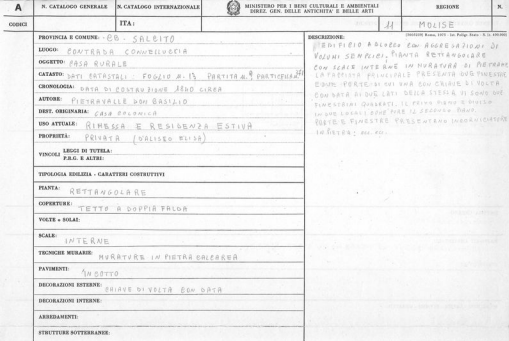 A
N. CATALOGO GENERALE
N. CATALOGO INTERNAZIONALE
MINISTERO PER I BENI CULTURALI E AMBIENTALI
DIREZ. GEN. DELLE ANTICHITA' E BELLE ARTI
REGIONE
N.
CODICI
ITA:
11
MOLISE
PROVINCIA E COMUNE: CB - SALCITO
LUOGO: CONTRADA
OGGETTO: CASA RURALE
CATASTO: DATI CATASTALI FOGLIO N. 13 PARTITA PARTICELLA
CRONOLOGIA: DATA DI COSTRUZIONE 1860 CIRCA
AUTORE: PIETRAVALLE DON BASILIO
DEST. ORIGINARIA: CASA COLONICA
USO ATTUALE: RIMESSA E RESIDENZA ESTIVA
PROPRIETÀ: PRIVATA (VALISEO ELISA)
VINCOLI
LEGGI DI TUTELA:
P.R.G. E ALTRI:
TIPOLOGIA EDILIZIA - CARATTERI COSTRUTTIVI
PIANTA: RETTANGOLARE
COPERTURE: TETTO A DOPPIA FALDA
VOLTE o SOLAI:
SCALE: INTERNE
TECNICHE MURARIE: MURATURE IN PIETRA CALCAREA
PAVIMENTI: IN COTTO
DECORAZIONI ESTERNE: CHIAVE DI VOLTA CON DATA
DECORAZIONI INTERNE:
ARREDAMENTI:
STRUTTURE SOTTERRANEE:
DESCRIZIONE:
EDIFICIO A BLOCCO CON AGGREGAZIONI DI
VOLUMI SEMPLICI, PIANTA RETTANGOLARE
CON SCALE INTERNE IN MURATURA DI PIETRAME
LA FACCIATA PRINCIPALE PRESENTA DUE FINESTRE
E DUE PORTE DI CUI UNA CON CHIAVE DI VOLTA
CON DATA. DUE LATI DELLA STESSA SONO DUE
FINESTRINI QUADRATI. IL PRIMO PIANO È DIVISO
IN DUE LOCALI COME PURE IL SECONDO PIANO.
PORTE E FINESTRE PRESENTANO INCORNICIATURE
IN PIETRA.